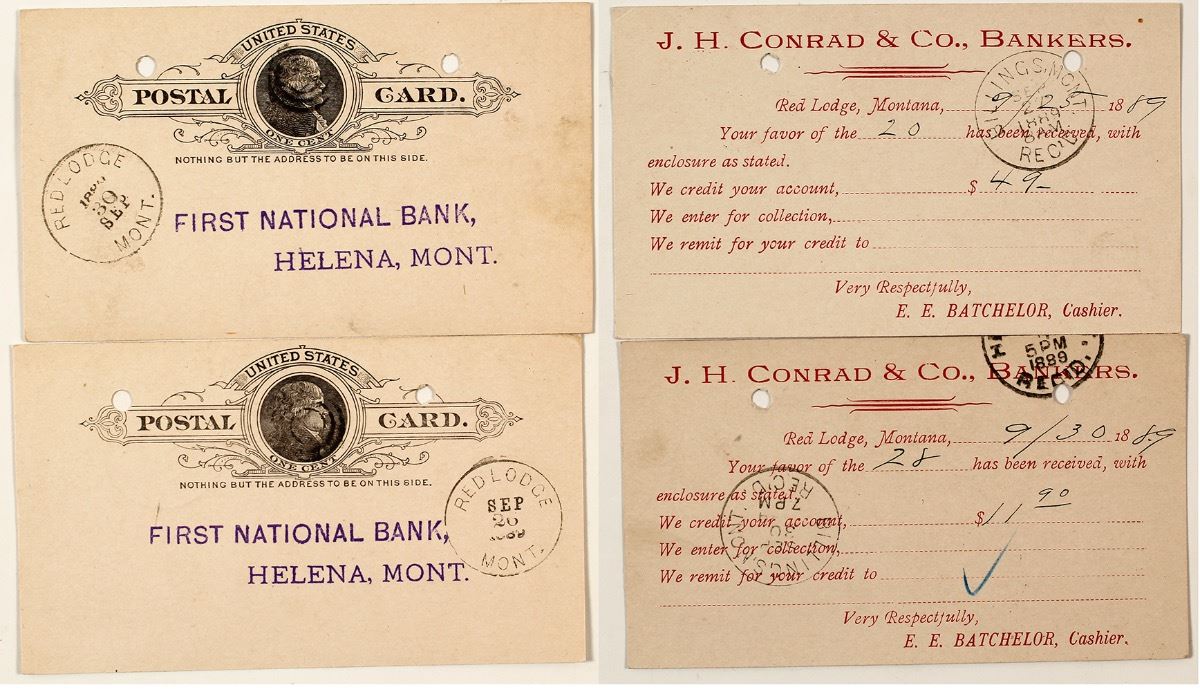 UNITED STATES
POSTAL CARD.
ONE CENT
NOTHING BUT THE ADDRESS TO BE ON THIS SIDE.
RED LODGE
30
SEP
MONT.
FIRST NATIONAL BANK,
HELENA, MONT.
J. H. CONRAD & CO., BANKERS.
Red Lodge, Montana, 9/25 1889
Your favor of the 20 has been received, with
enclosure as stated.
We credit your account, $ 49-
We enter for collection,
We remit for your credit to
Very Respectfully,
E. E. BATCHELOR, Cashier.
BILLINGS, MONT.
1889
REC'D
UNITED STATES
POSTAL CARD.
ONE CENT
NOTHING BUT THE ADDRESS TO BE ON THIS SIDE.
RED LODGE
SEP
26
1889
MONT.
FIRST NATIONAL BANK,
HELENA, MONT.
5 PM
1889
REC'D.
J. H. CONRAD & CO., BANKERS.
Red Lodge, Montana, 9/30 1889
Your favor of the 28 has been received, with
enclosure as stated.
We credit your account, $11 90
We enter for collection,
We remit for your credit to
Very Respectfully,
E. E. BATCHELOR, Cashier.
BILLINGS, MONT.
7 PM
REC'D